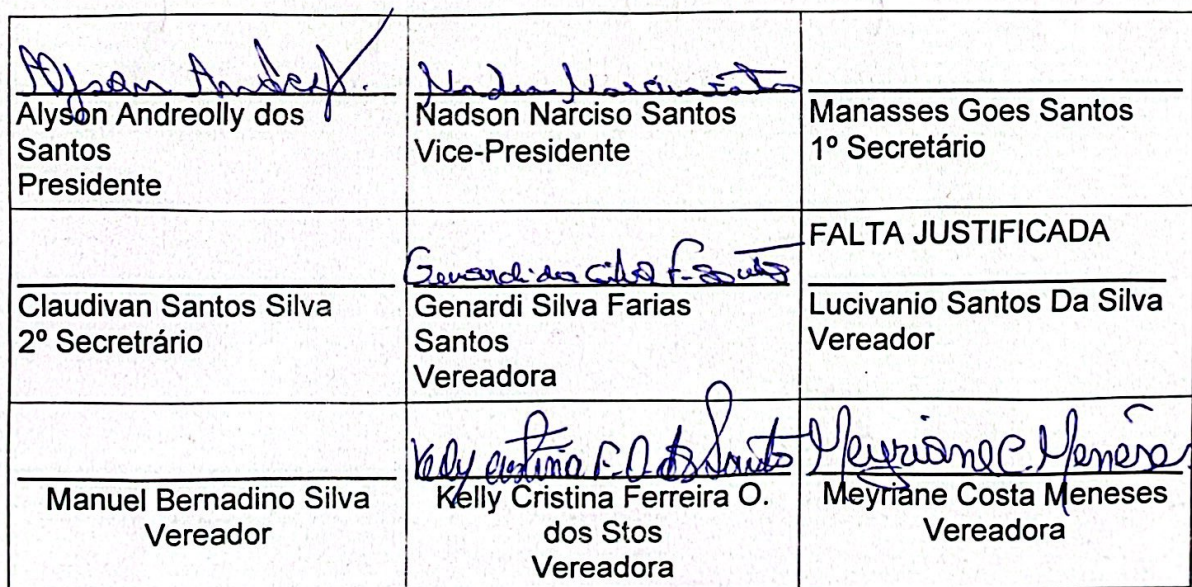 Alyson Andreoll.
Alyson Andreolly dos
Santos
Presidente
Nadson Narciso Santos
Nadson Narciso Santos
Vice-Presidente
Manasses Goes Santos
1º Secretário
Claudivan Santos Silva
2º Secretrário
Genardi da Silva F. Santos
Genardi Silva Farias
Santos
Vereadora
FALTA JUSTIFICADA
Lucivanio Santos Da Silva
Vereador
Manuel Bernadino Silva
Vereador
Kelly Cristina F. O. dos Santos
Kelly Cristina Ferreira O.
dos Stos
Vereadora
Meyriane C. Meneses
Meyriane Costa Meneses
Vereadora